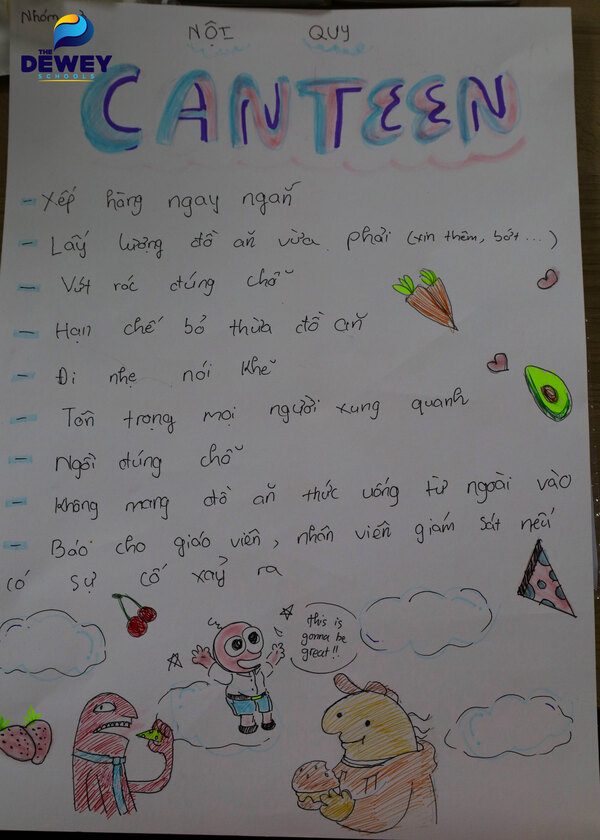 Nhóm
THE
DEWEY
SCHOOLS
NỘI QUY
CANTEEN
- Xếp hàng ngay ngắn
- Lấy lượng đồ ăn vừa phải (xin thêm, bớt...)
- Vứt rác đúng chỗ
- Hạn chế bỏ thừa đồ ăn
- Đi nhẹ nói khẽ
- Tôn trọng mọi người xung quanh
- Ngồi đúng chỗ
- Không mang đồ ăn thức uống từ ngoài vào
- Báo cho giáo viên, nhân viên giám sát nếu
có sự cố xảy ra
this is
gonna be
great!!